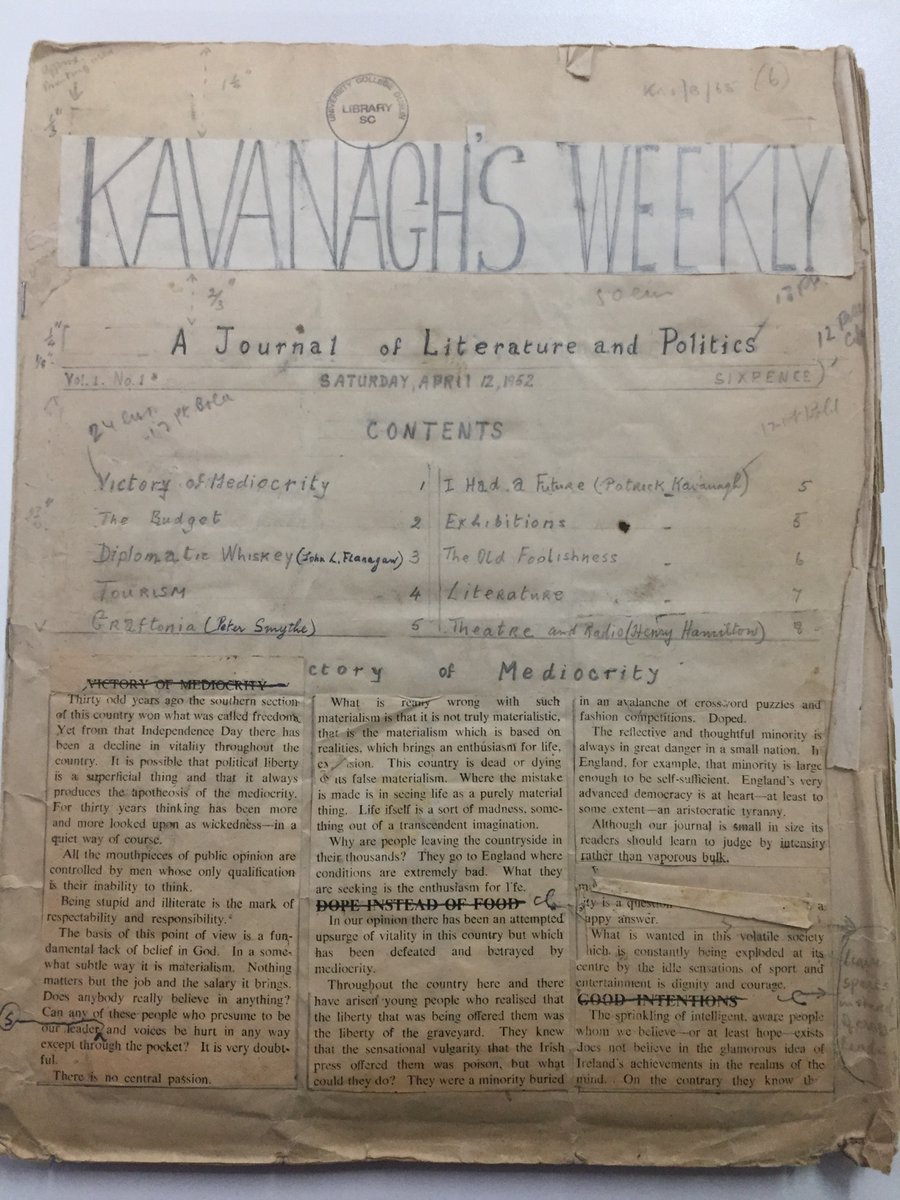 1½"
UNIVERSITY COLLEGE DUBLIN
LIBRARY
SC
(6)
KAVANAGH'S WEEKLY
2/3"
50 em
A Journal of Literature and Politics
Vol. 1. No. 1
SATURDAY, APRIL 12, 1952
SIXPENCE
CONTENTS
Victory of Mediocrity 1
The Budget 2
Diplomatic Whiskey (John L. Flanagan) 3
Tourism 4
Graftonia (Peter Smythe) 5
I Had a Future (Patrick Kavanagh) 5
Exhibitions 5
The Old Foolishness 6
Literature 7
Theatre and Radio (Henry Hamilton) 8
ctory of Mediocrity
VICTORY OF MEDIOCRITY
Thirty odd years ago the southern section
of this country won what was called freedom.
Yet from that Independence Day there has
been a decline in vitality throughout the
country. It is possible that political liberty
is a superficial thing and that it always
produces the apotheosis of the mediocrity.
For thirty years thinking has been more
and more looked upon as wickedness—in a
quiet way of course.
All the mouthpieces of public opinion are
controlled by men whose only qualification
is their inability to think.
Being stupid and illiterate is the mark of
respectability and responsibility.
The basis of this point of view is a fun-
damental lack of belief in God. In a some-
what subtle way it is materialism. Nothing
matters but the job and the salary it brings.
Does anybody really believe in anything?
Can any of these people who presume to be
our leader and voices be hurt in any way
except through the pocket? It is very doubt-
ful.
There is no central passion.
What is really wrong with such
materialism is that it is not truly materialistic,
that is the materialism which is based on
realities, which brings an enthusiasm for life,
sion. This country is dead or dying
of its false materialism. Where the mistake
is made is in seeing life as a purely material
thing. Life itself is a sort of madness, some-
thing out of a transcendent imagination.
Why are people leaving the countryside in
their thousands? They go to England where
conditions are extremely bad. What they
are seeking is the enthusiasm for life.
DOPE INSTEAD OF FOOD
In our opinion there has been an attempted
upsurge of vitality in this country but which
has been defeated and betrayed by
mediocrity.
Throughout the country here and there
have arisen young people who realised that
the liberty that was being offered them was
the liberty of the graveyard. They knew
that the sensational vulgarity that the Irish
press offered them was poison, but what
could they do? They were a minority buried
in an avalanche of crossword puzzles and
fashion competitions. Doped.
The reflective and thoughtful minority is
always in great danger in a small nation. In
England, for example, that minority is large
enough to be self-sufficient. England's very
advanced democracy is at heart—at least to
some extent—an aristocratic tyranny.
Although our journal is small in size its
readers should learn to judge by intensity
rather than vaporous bulk.
ity is a question a
appy answer.
What is wanted in this volatile society
hich is constantly being exploded at its
centre by the idle sensations of sport and
entertainment is dignity and courage.
GOOD INTENTIONS
The sprinkling of intelligent, aware people
whom we believe—or at least hope—exists
does not believe in the glamorous idea of
Ireland's achievements in the realms of the
mind. On the contrary they know th